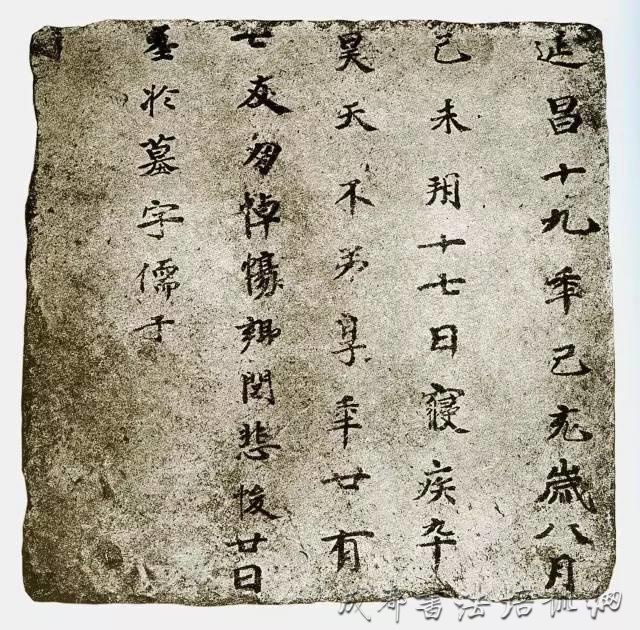 延昌十九年己亥歲八月
己未朔十七日寢疾卒
昊天不弔享年廿有
七友朋悼慯鄰閭悲悛廿日
塟於墓字儒子
成都書法培訓網